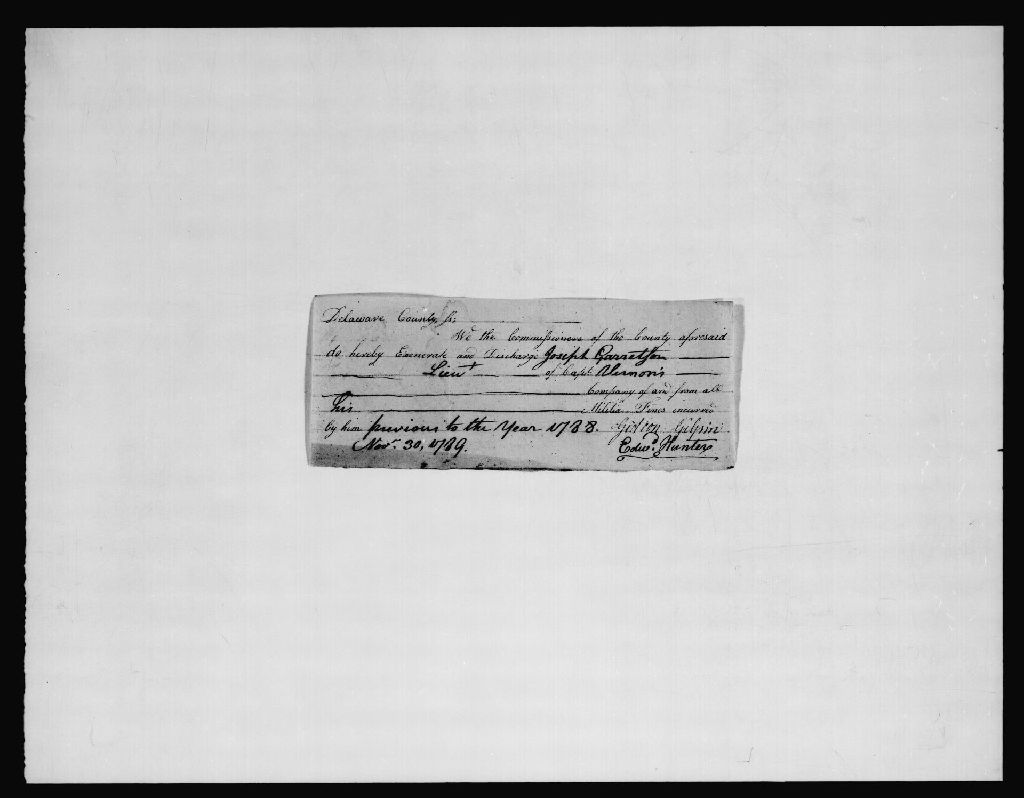 Delaware County, ss.
We the Commissioners of the County aforesaid
do hereby Exonerate and Discharge Joseph Garretson
Lieut of Capt.
Company of and from all
his Militia Fines incurred
by him previous to the Year 1788. Gideon Gilpin
Novr. 30, 1789. Edwd. Hunter